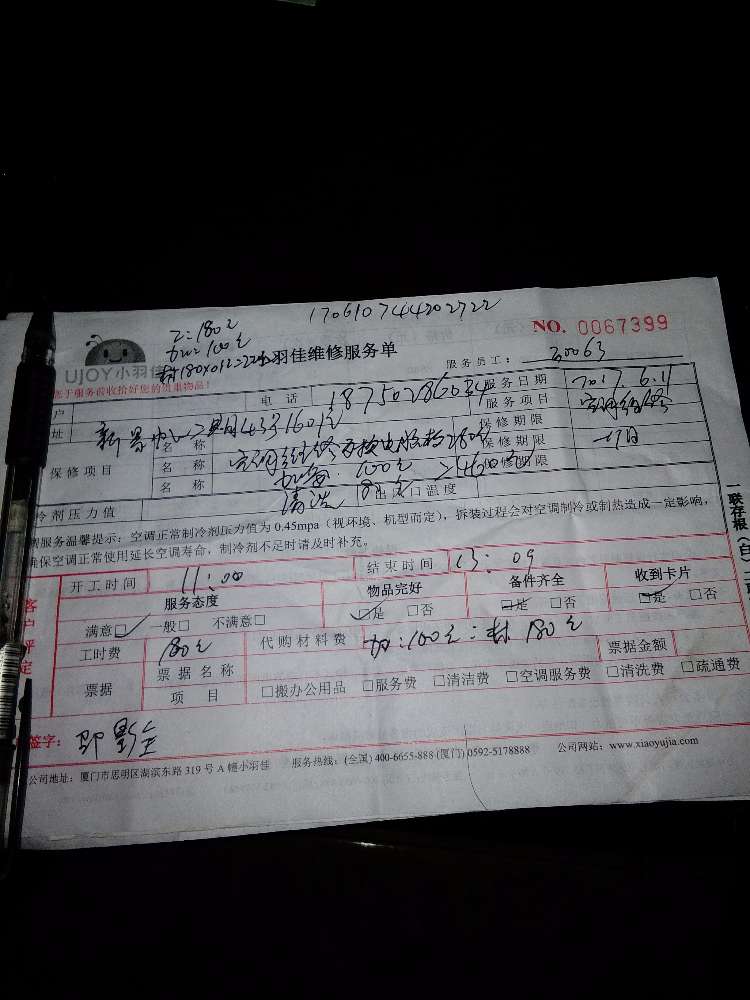 170610744202722
工:180元
加:100元
NO. 0067399
UJOY小羽佳
小羽佳维修服务单
服务员工:
服务前收拾好您的贵重物品!
户
电 话
服务日期 2017.6.11
址
服务项目 空调维修
保修项目
名 称 空调维修
保修期限
名 称 加 100元
保修期限 一月
名 称 清洗
保修期限
冷剂压力值
出风口温度
服务温馨提示:空调正常制冷剂压力值为 0.45mpa(视环境、机型而定),拆装过程会对空调制冷或制热造成一定影响,
确保空调正常使用延长空调寿命,制冷剂不足时请及时补充。
一联存根(白)
客户评定
开工时间 11:00
结束时间 13:09
服务态度
物品完好
备件齐全
收到卡片
满意□ 一般□ 不满意□
□是 □否
□是 □否
□是 □否
工时费 180元
代购材料费 加:100元:材 180元
票据金额
票据
票据名称
项 目
□搬办公用品 □服务费 □清洁费 □空调服务费 □清洗费 □疏通费
签字:
公司地址:厦门市思明区湖滨东路 319 号 A 幢小羽佳 服务热线:(全国) 400-6655-888 (厦门) 0592-5178888 公司网站:www.xiaoyujia.com